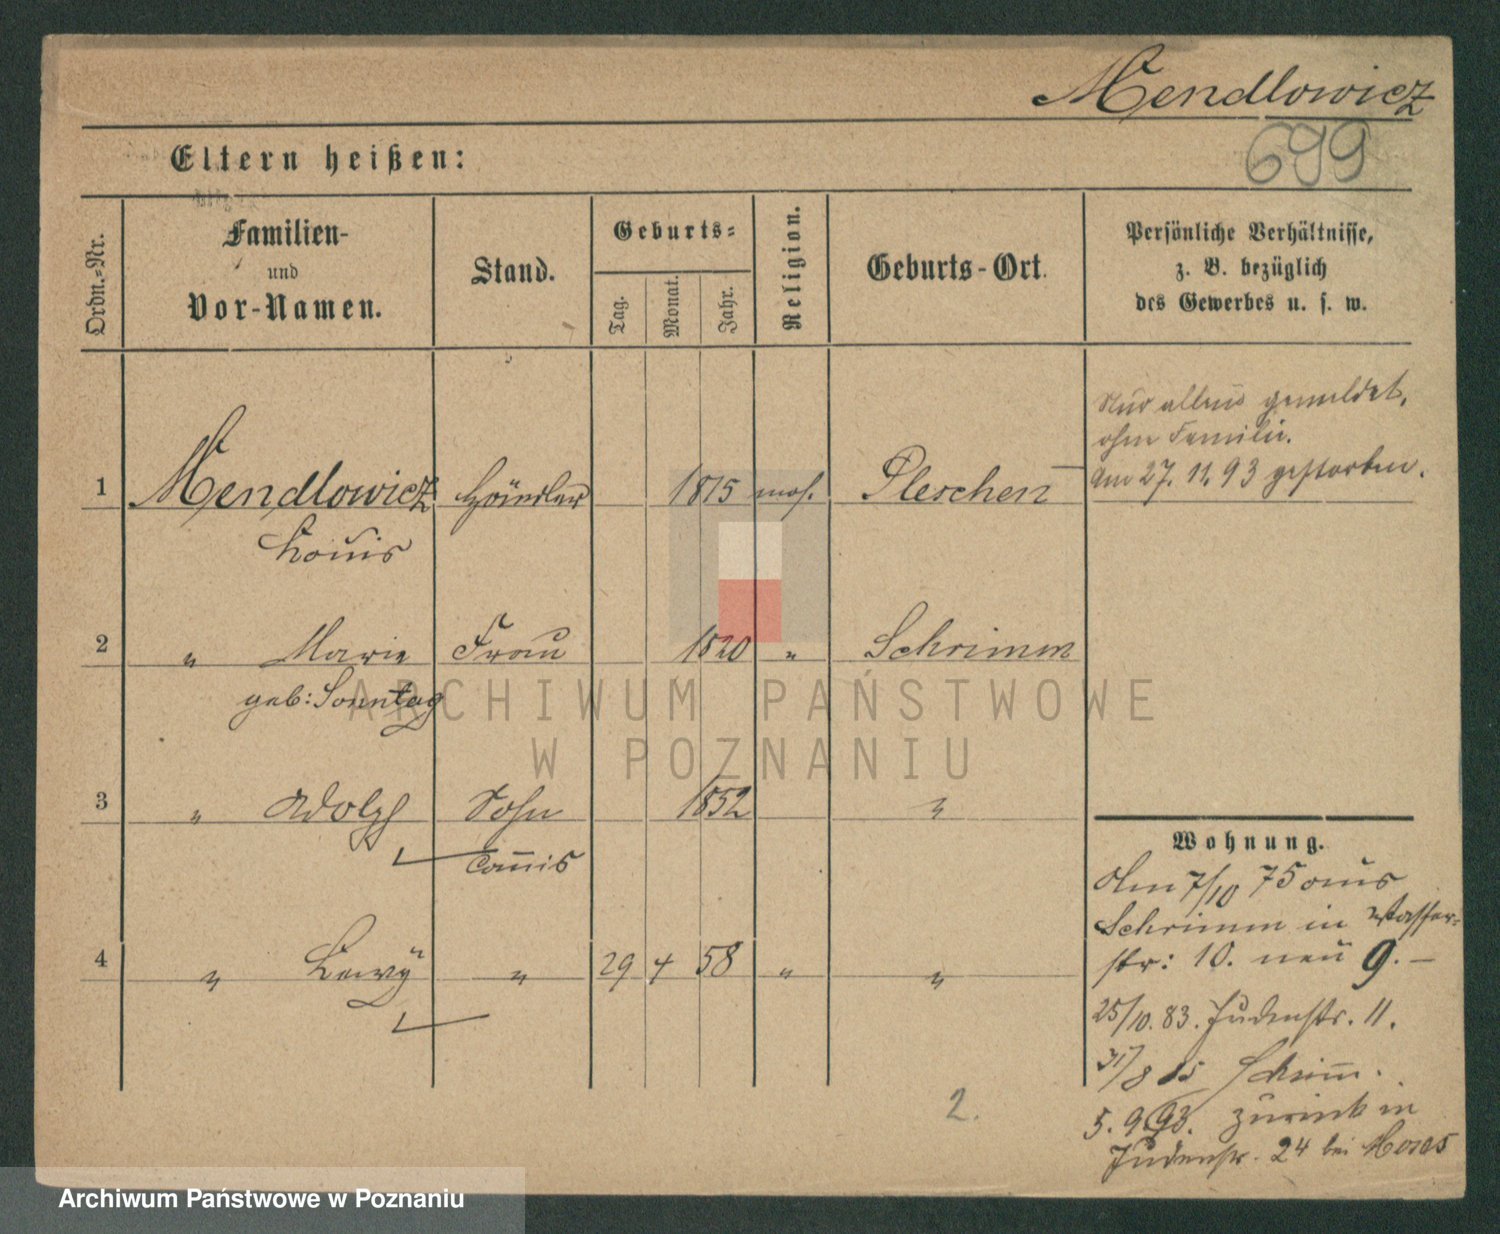 Mendlowicz
699
Eltern heißen:
Ordn.-Nr.
Familien-
und
Vor-Namen.
Stand.
Geburts-
Tag.
Monat.
Jahr.
Religion.
Geburts-Ort.
Persönliche Verhältnisse,
z. B. bezüglich
des Gewerbes u. s. w.
Nur allein gemeldet,
ohne Familie.
Am 27. 11. 93 gestorben.
1 Mendlowicz Händler 1815 mos. Pleschen
Louis
2 " Marie Frau 1820 " Schrimm
geb: Sonntag
3 " Adolph Sohn 1852 "
Commis
4 " " 29 4 58 " "
Wohnung.
Am 7/10 75 aus
Schrimm in Wasser-
str: 10. neu 9. –
25/10. 83. Judenstr. 11.
31/8 85 Schrimm.
5. 9. 93. zurück in
Judenstr. 24 bei Moses
2.
ARCHIWUM PAŃSTWOWE
W POZNANIU
Archiwum Państwowe w Poznaniu